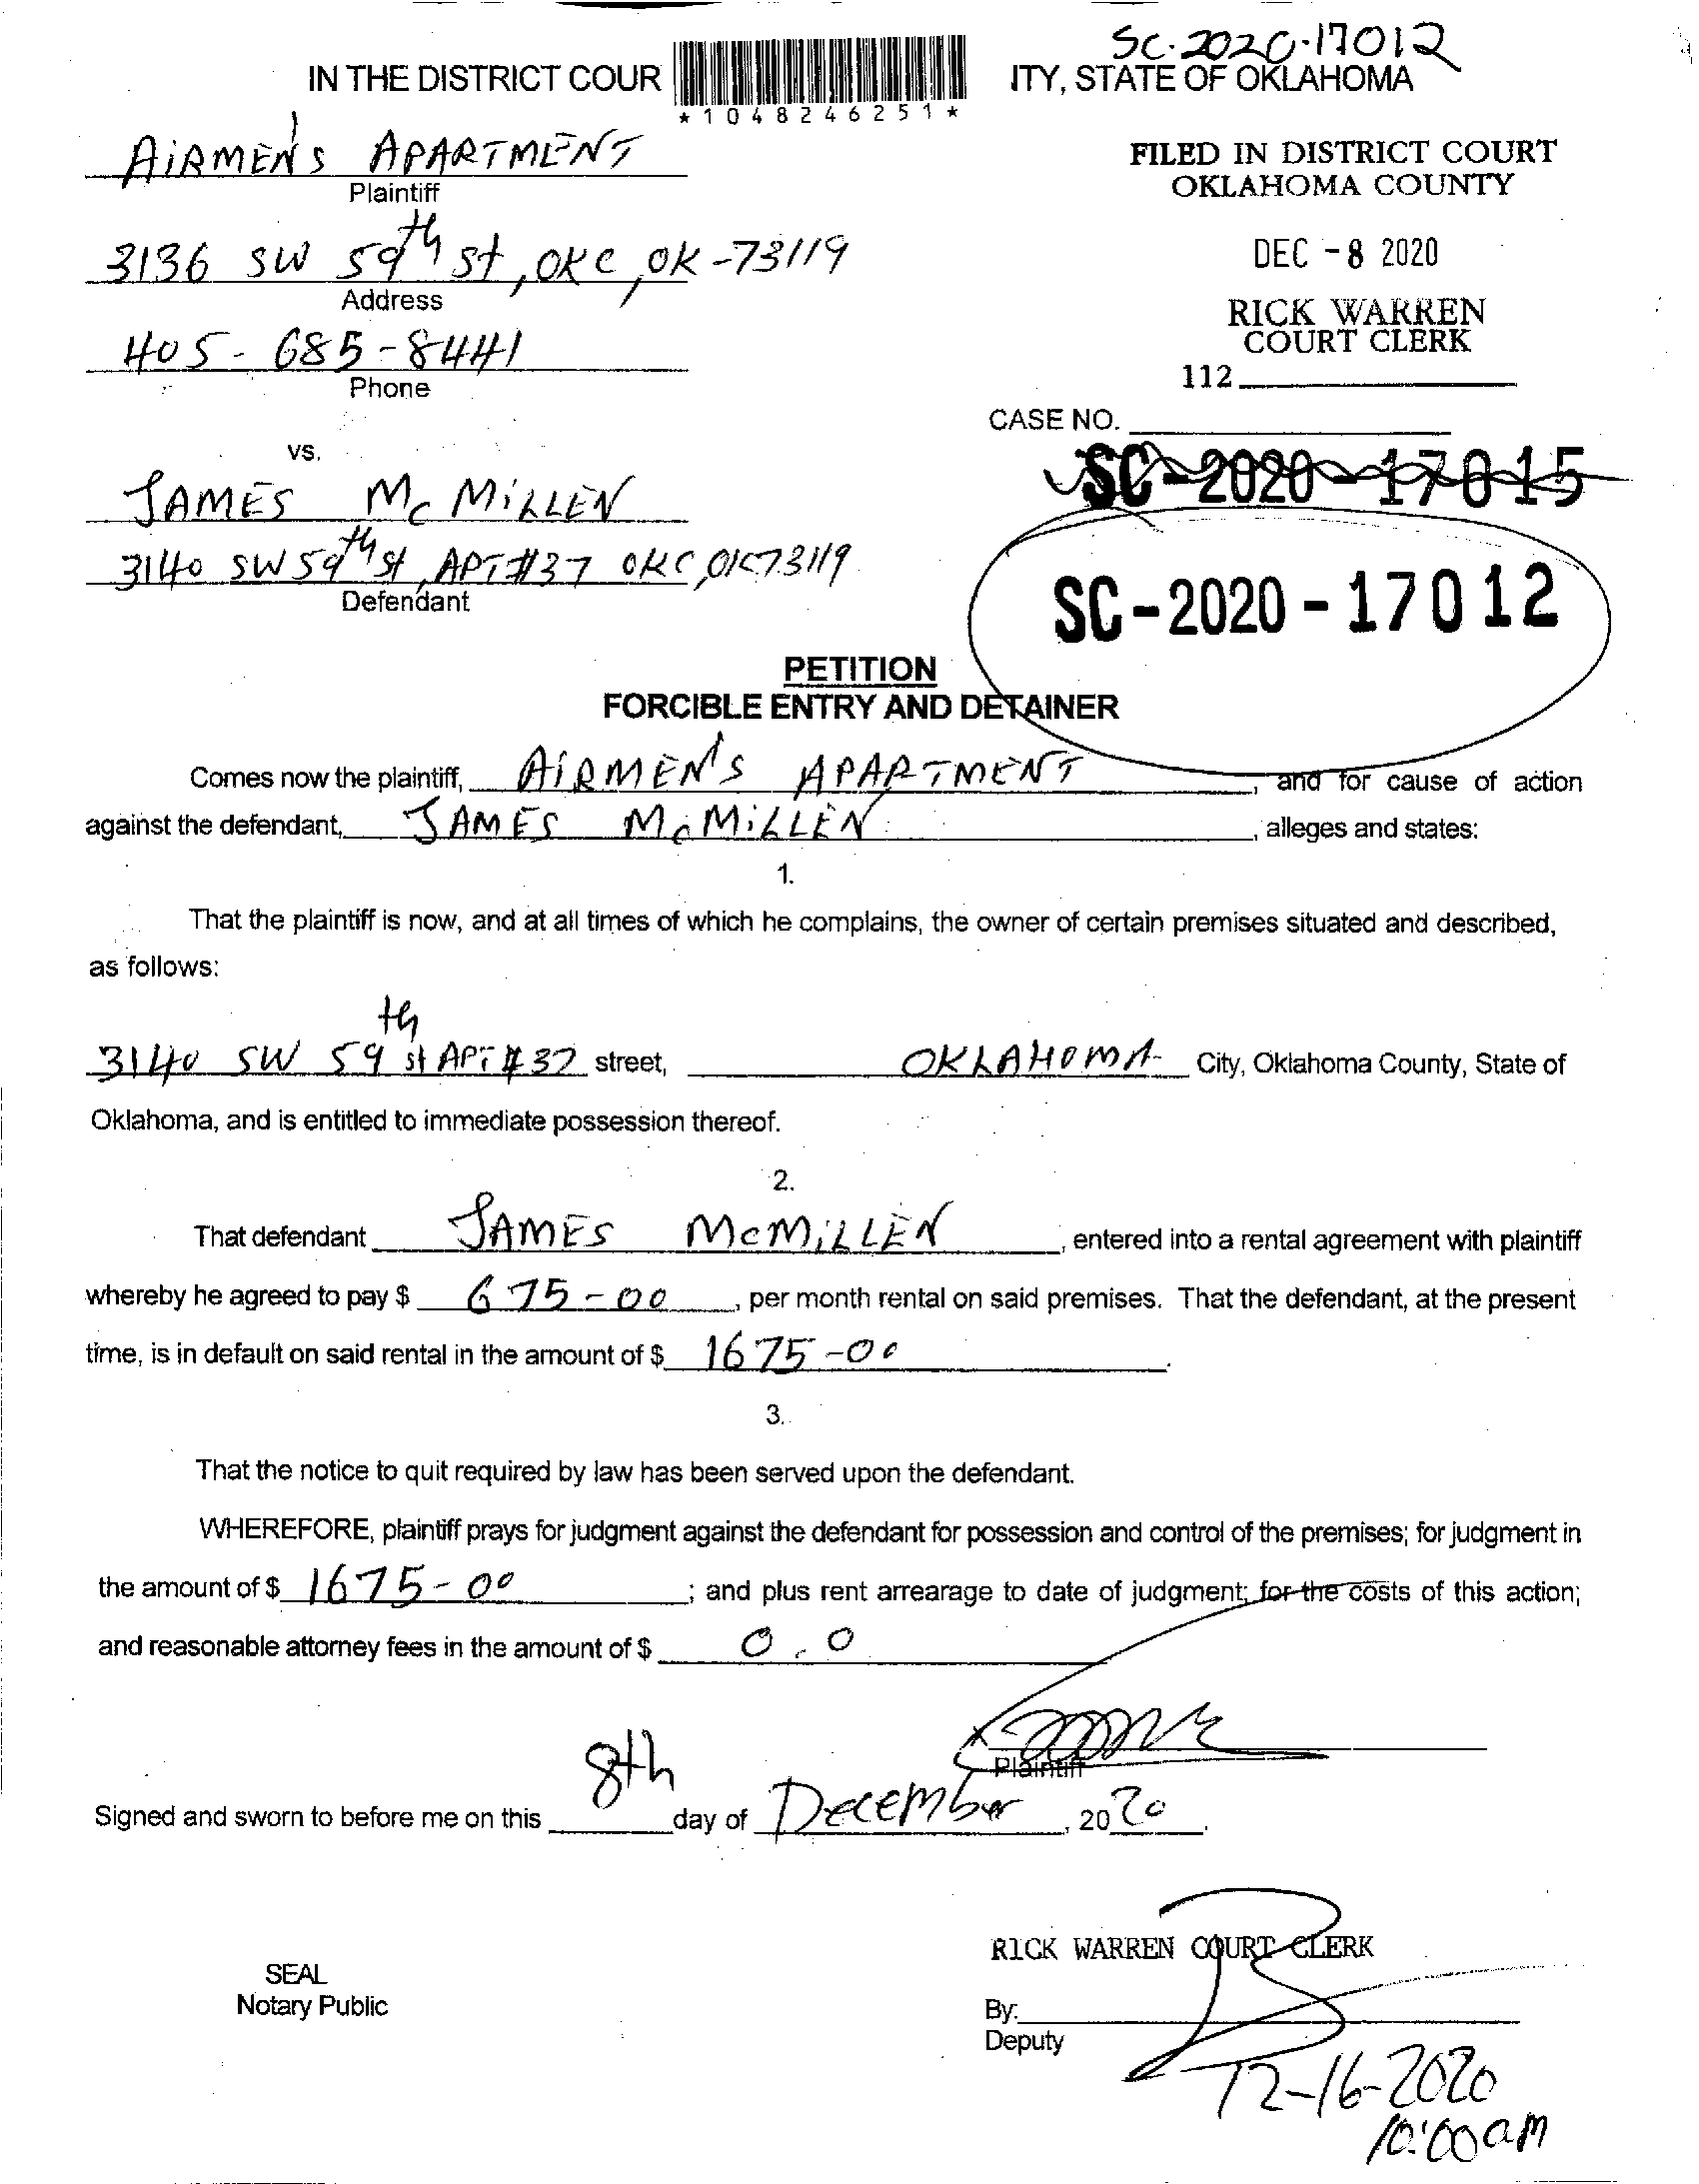 SC-2020-17012
IN THE DISTRICT COUR ITY, STATE OF OKLAHOMA
*1048246251*
AiRMEN'S APARTMENT
Plaintiff
FILED IN DISTRICT COURT
OKLAHOMA COUNTY
3136 SW 59th St, OKC, OK-73119
Address
DEC -8 2020
RICK WARREN
COURT CLERK
405-685-8441
Phone
112
CASE NO.
vs.
SC-2020-17015
JAMES McMiLLEN
3140 SW 59th St, APT #37 OKC, OK73119
Defendant
SC-2020-17012
PETITION
FORCIBLE ENTRY AND DETAINER
Comes now the plaintiff, AiRMEN'S APARTMENT, and for cause of action
against the defendant, JAMES McMiLLEN, alleges and states:
1.
That the plaintiff is now, and at all times of which he complains, the owner of certain premises situated and described,
as follows:
3140 SW 59th st APT #37 street, OKLAHOMA City, Oklahoma County, State of
Oklahoma, and is entitled to immediate possession thereof.
2.
That defendant JAMES McMiLLEN, entered into a rental agreement with plaintiff
whereby he agreed to pay $ 675-00, per month rental on said premises. That the defendant, at the present
time, is in default on said rental in the amount of $ 1675-00.
3.
That the notice to quit required by law has been served upon the defendant.
WHEREFORE, plaintiff prays for judgment against the defendant for possession and control of the premises; for judgment in
the amount of $ 1675-00; and plus rent arrearage to date of judgment; for the costs of this action;
and reasonable attorney fees in the amount of $ 0.0
Plaintiff
Signed and sworn to before me on this 8th day of December, 2020.
RICK WARREN COURT CLERK
SEAL
Notary Public
By:
Deputy
12-16-2020
10:00am